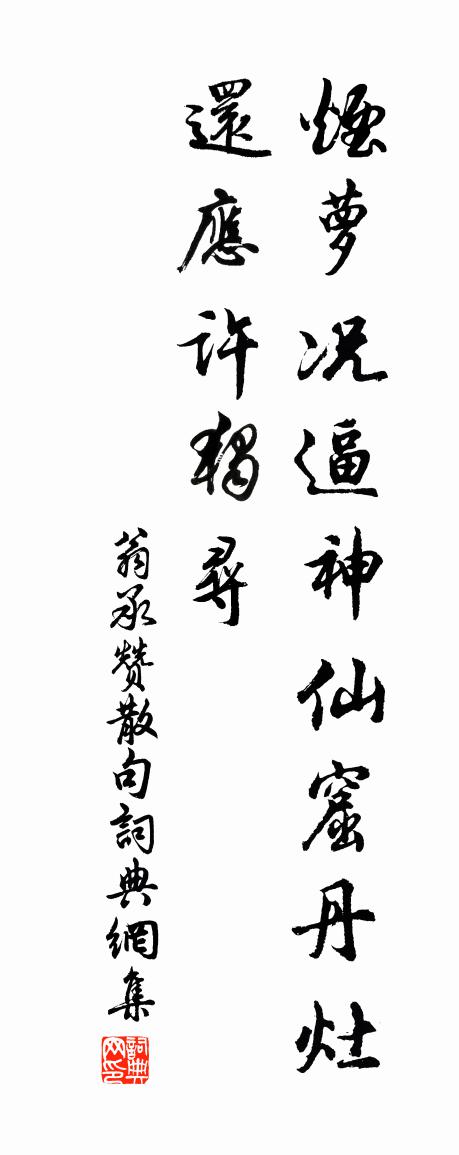 煙萝况逼神仙窟丹灶
還應許獨尋
翁承赞散句詞典網集
詞典网印